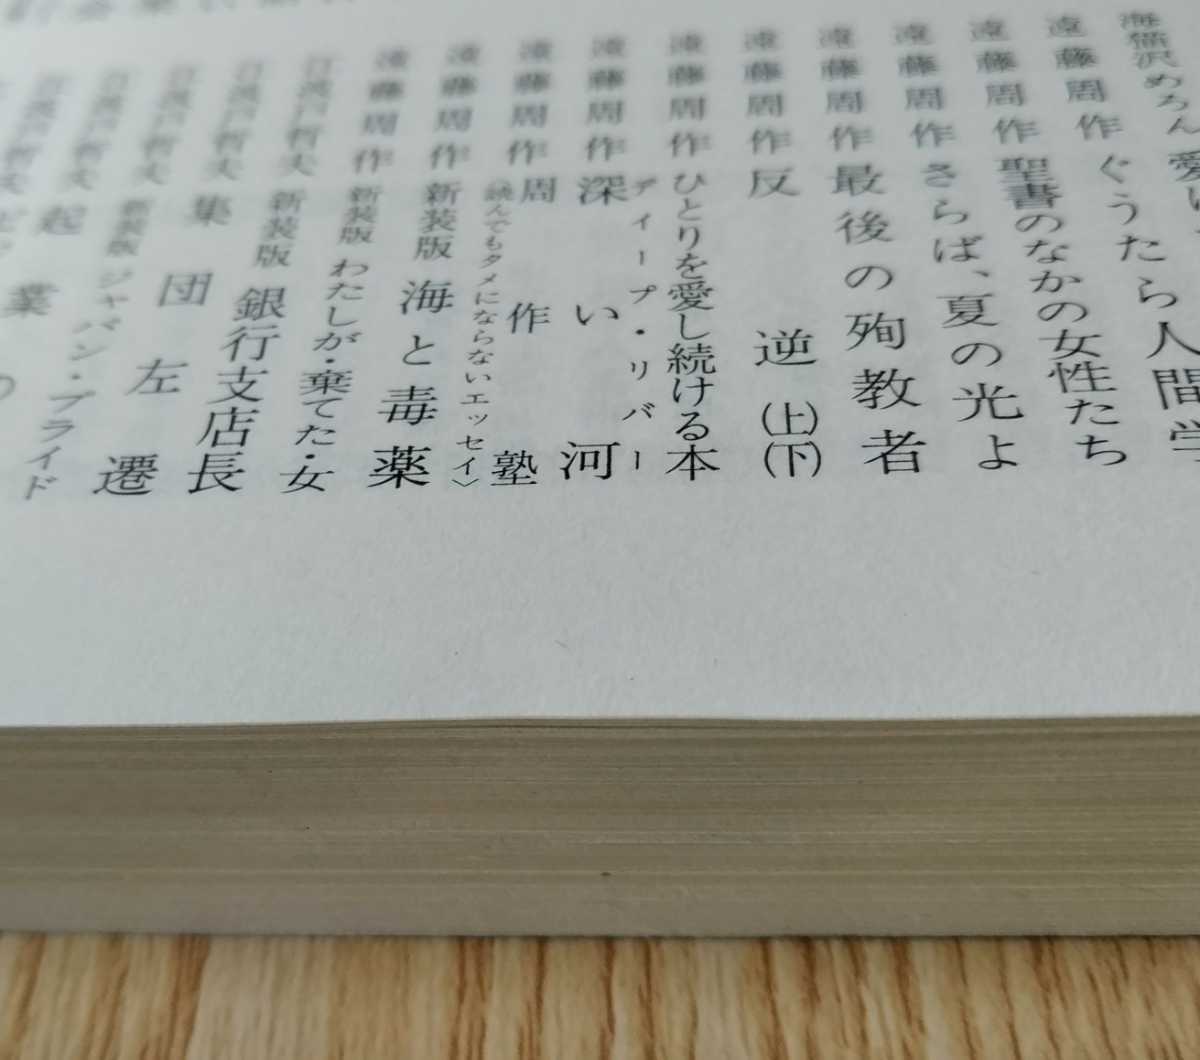 海猫沢めろん 愛
遠藤周作 ぐうたら人間学
遠藤周作 聖書のなかの女性たち
遠藤周作 さらば、夏の光よ
遠藤周作 最後の殉教者
遠藤周作 反逆(上)(下)
遠藤周作 ひとりを愛し続ける本
ディープ・リバー
遠藤周作 深い河
遠藤周作 周作塾
読んでもタメにならないエッセイ〉
遠藤周作 新装版 海と毒薬
遠藤周作 新装版 わたしが・棄てた・女
江波戸哲夫 新装版 銀行支店長
江波戸哲夫 集団左遷
江波戸哲夫 新装版 ジャパン・プライド
江波戸哲夫 起業の